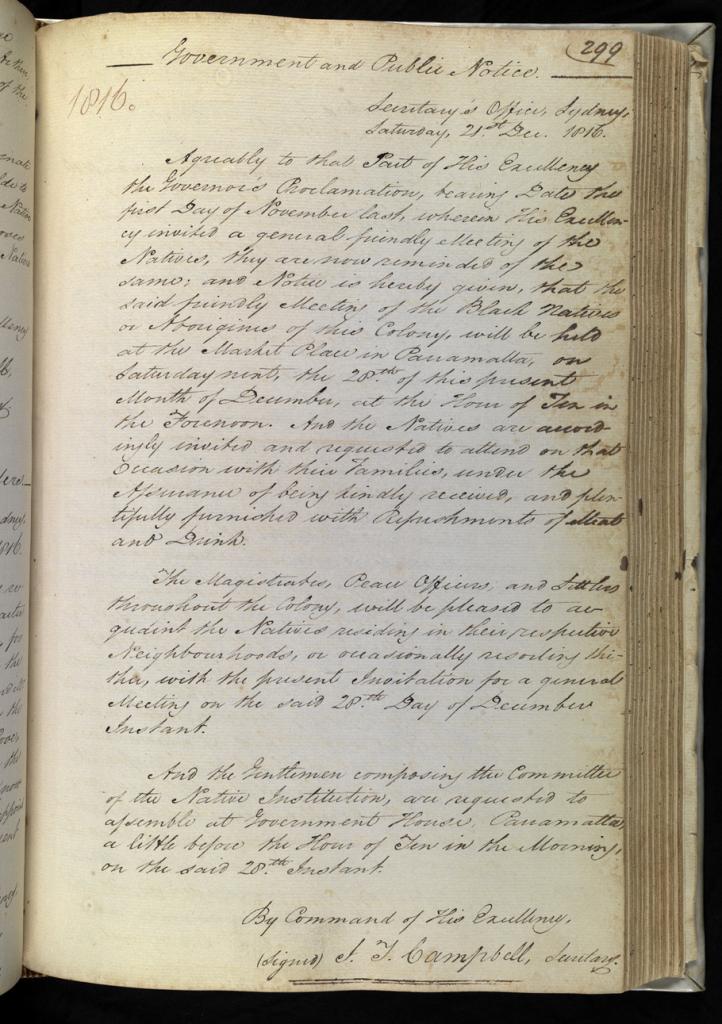 299
Government and Public Notice.
1816.
Secretary's Office, Sydney,
Saturday, 21st Dec. 1816.
Agreably to that Part of His Excellency
the Governor's Proclamation, bearing Date the
first Day of November last, wherein His Excellen-
cy invited a general friendly Meeting of the
Natives, they are now reminded of the
same; and Notice is hereby given, that the
said friendly Meeting of the Black Natives
or Aborigines of this Colony, will be held
at the Market Place in Parramatta, on
Saturday next, the 28th of this present
Month of December, at the Hour of Ten in
the Forenoon. And the Natives are accord-
ingly invited and requested to attend on that
Occasion with their Families, under the
Assurance of being kindly received, and plen-
tifully furnished with Refreshments of Meat
and Drink.
The Magistrates, Peace Officers, and Settlers
throughout the Colony, will be pleased to ac-
quaint the Natives residing in their respective
Neighbourhoods, or occasionally resorting thi-
ther, with the present Invitation for a general
Meeting on the said 28th Day of December
Instant.
And the Gentlemen composing the Committee
of the Native Institution, are requested to
assemble at Government House, Parramatta,
a little before the Hour of Ten in the Morning,
on the said 28th Instant.
By Command of His Excellency,
(signed) J. T. Campbell, Secretary.